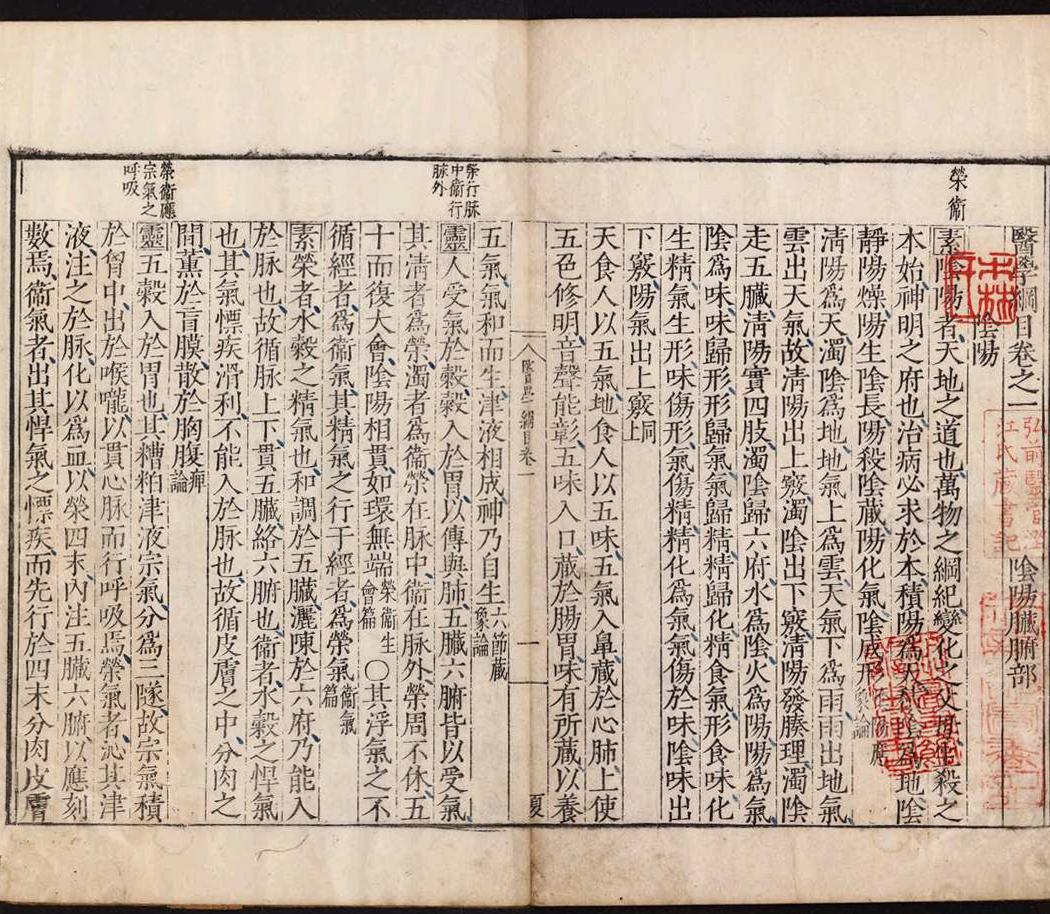 醫學綱目卷之一　陰陽臟腑部
陰陽
榮衛
素陰陽者天地之道也萬物之綱紀變化之父母生殺之
本始神明之府也治病必求於本積陽為天積陰為地陰
靜陽燥陽生陰長陽殺陰藏陽化氣陰成形
清陽為天濁陰為地地氣上為雲天氣下為雨雨出地氣
雲出天氣故清陽出上竅濁陰出下竅清陽發腠理濁陰
走五臟清陽實四肢濁陰歸六府水為陰火為陽陽為氣
陰為味味歸形形歸氣氣歸精精歸化精食氣形食味化
生精氣生形味傷形氣傷精精化為氣氣傷於味陰味出
下竅陽氣出上竅同上
天食人以五氣地食人以五味五氣入鼻藏於心肺上使
五色修明音聲能彰五味入口藏於腸胃味有所藏以養
醫學綱目卷一
一
五氣氣和而生津液相成神乃自生六節藏象論
榮行脉中衛行脉外
靈人受氣於穀穀入於胃以傳與肺五臟六腑皆以受氣
其清者為榮濁者為衛榮在脈中衛在脈外榮周不休五
十而復大會陰陽相貫如環無端榮衛生會篇〇其浮氣之不
循經者為衛氣其精氣之行于經者為榮氣衛氣篇
素榮者水穀之精氣也和調於五臟灑陳於六府乃能入
於脉也故循脉上下貫五臟絡六腑也衛者水穀之悍氣
也其氣慓疾滑利不能入於脉也故循皮膚之中分肉之
間薰於肓膜散於胸腹痺論
榮衛應宗氣之呼吸
靈五穀入於胃也其糟粕津液宗氣分為三隧故宗氣積
於胷中出於喉嚨以貫心脈而行呼吸焉榮氣者沁其津
液注之於脉化以為血以榮四末內注五臟六腑以應刻
數焉衛氣者出其悍氣之慓疾而先行於四末分肉皮膚